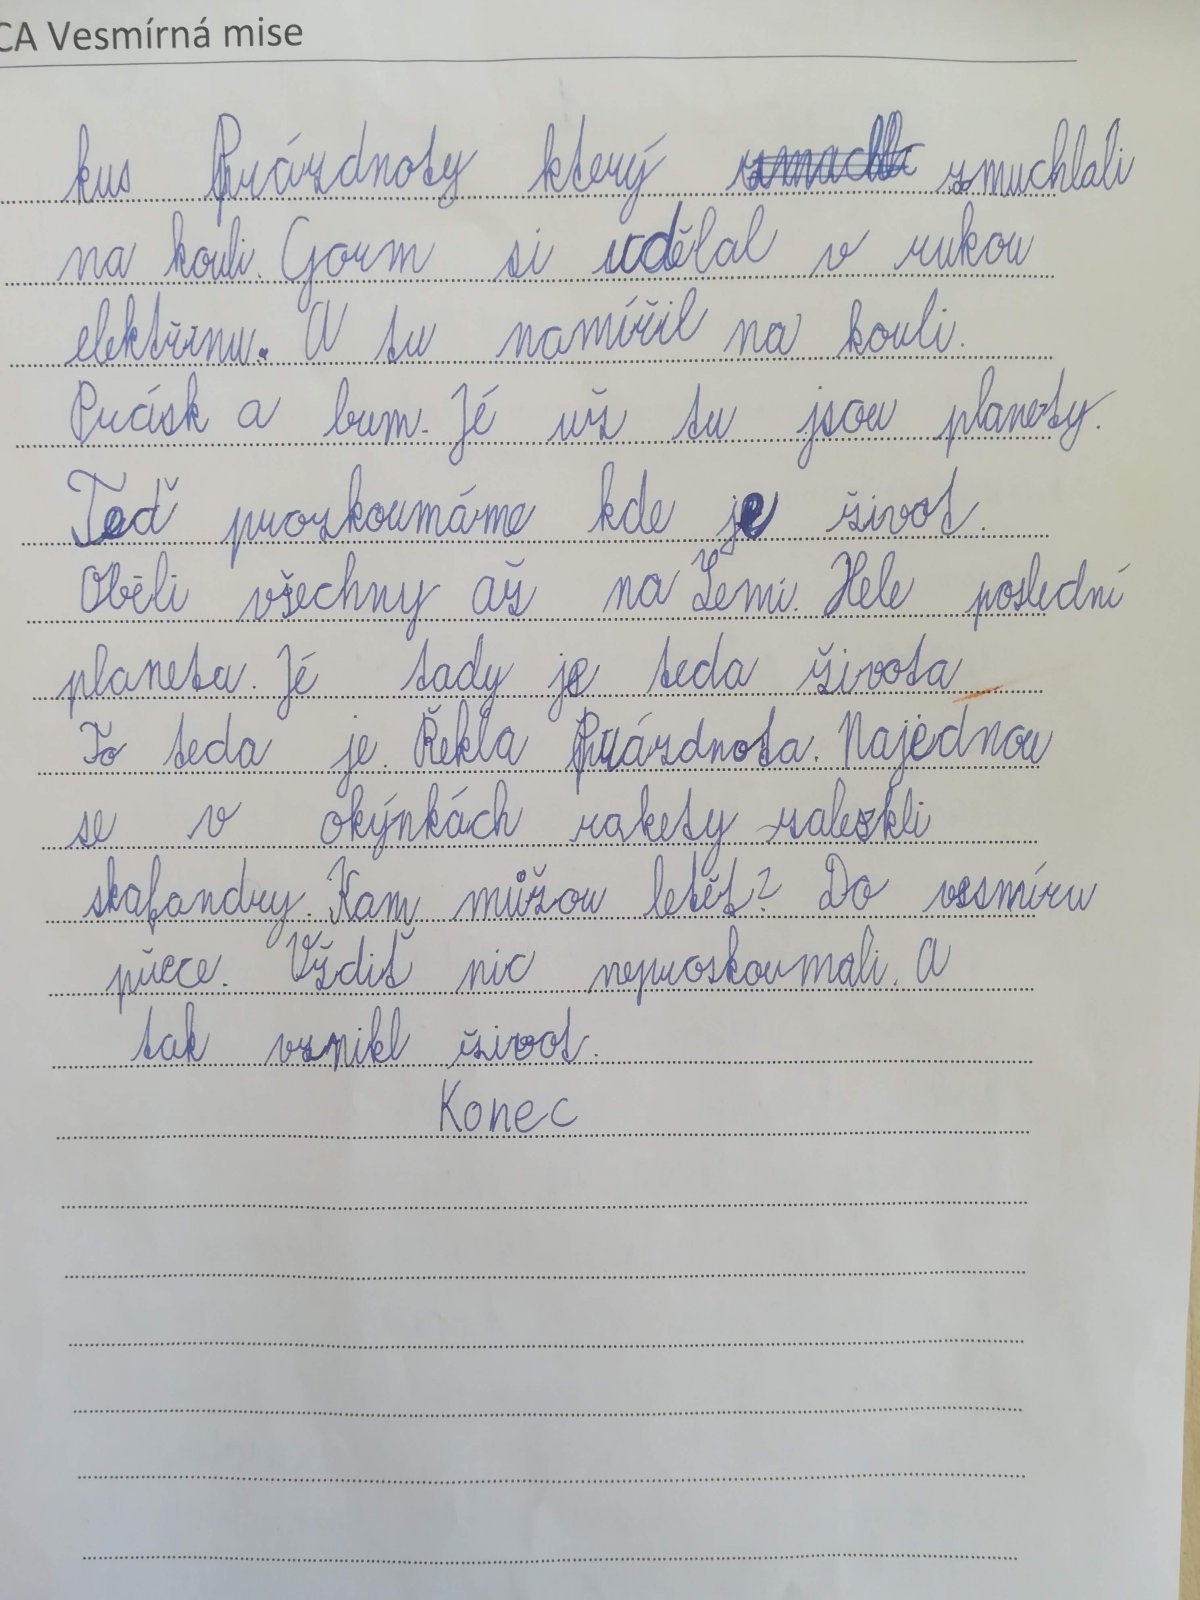 CA Vesmírná mise
kus Prázdnoty který zmuchlali
na kouli. Gorm si udělal v rukou
elektřinu. A tu namířil na kouli.
Prásk a bum. Jé už tu jsou planety.
Teď prozkoumáme kde je život.
Oběli všechny až na Zemi. Hele poslední
planeta. Jé tady je teda života
To teda je. Řekla Prázdnota. Najednou
se v okýnkách rakety zaleskli
skafandry. Kam můžou letět? Do vesmíru
přece. Vždiť nic neproskoumali. A
tak vznikl život.
Konec